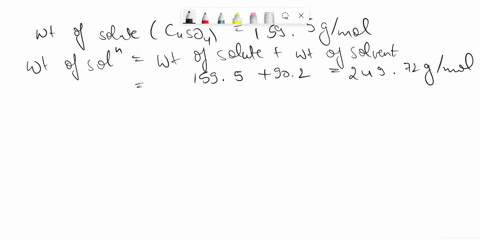 wt of solute (CuSO4) = 159.5 g/mol
wt of solⁿ = wt of solute + wt of solvent
= 159.5 + 90.2 = 249.72 g/mol